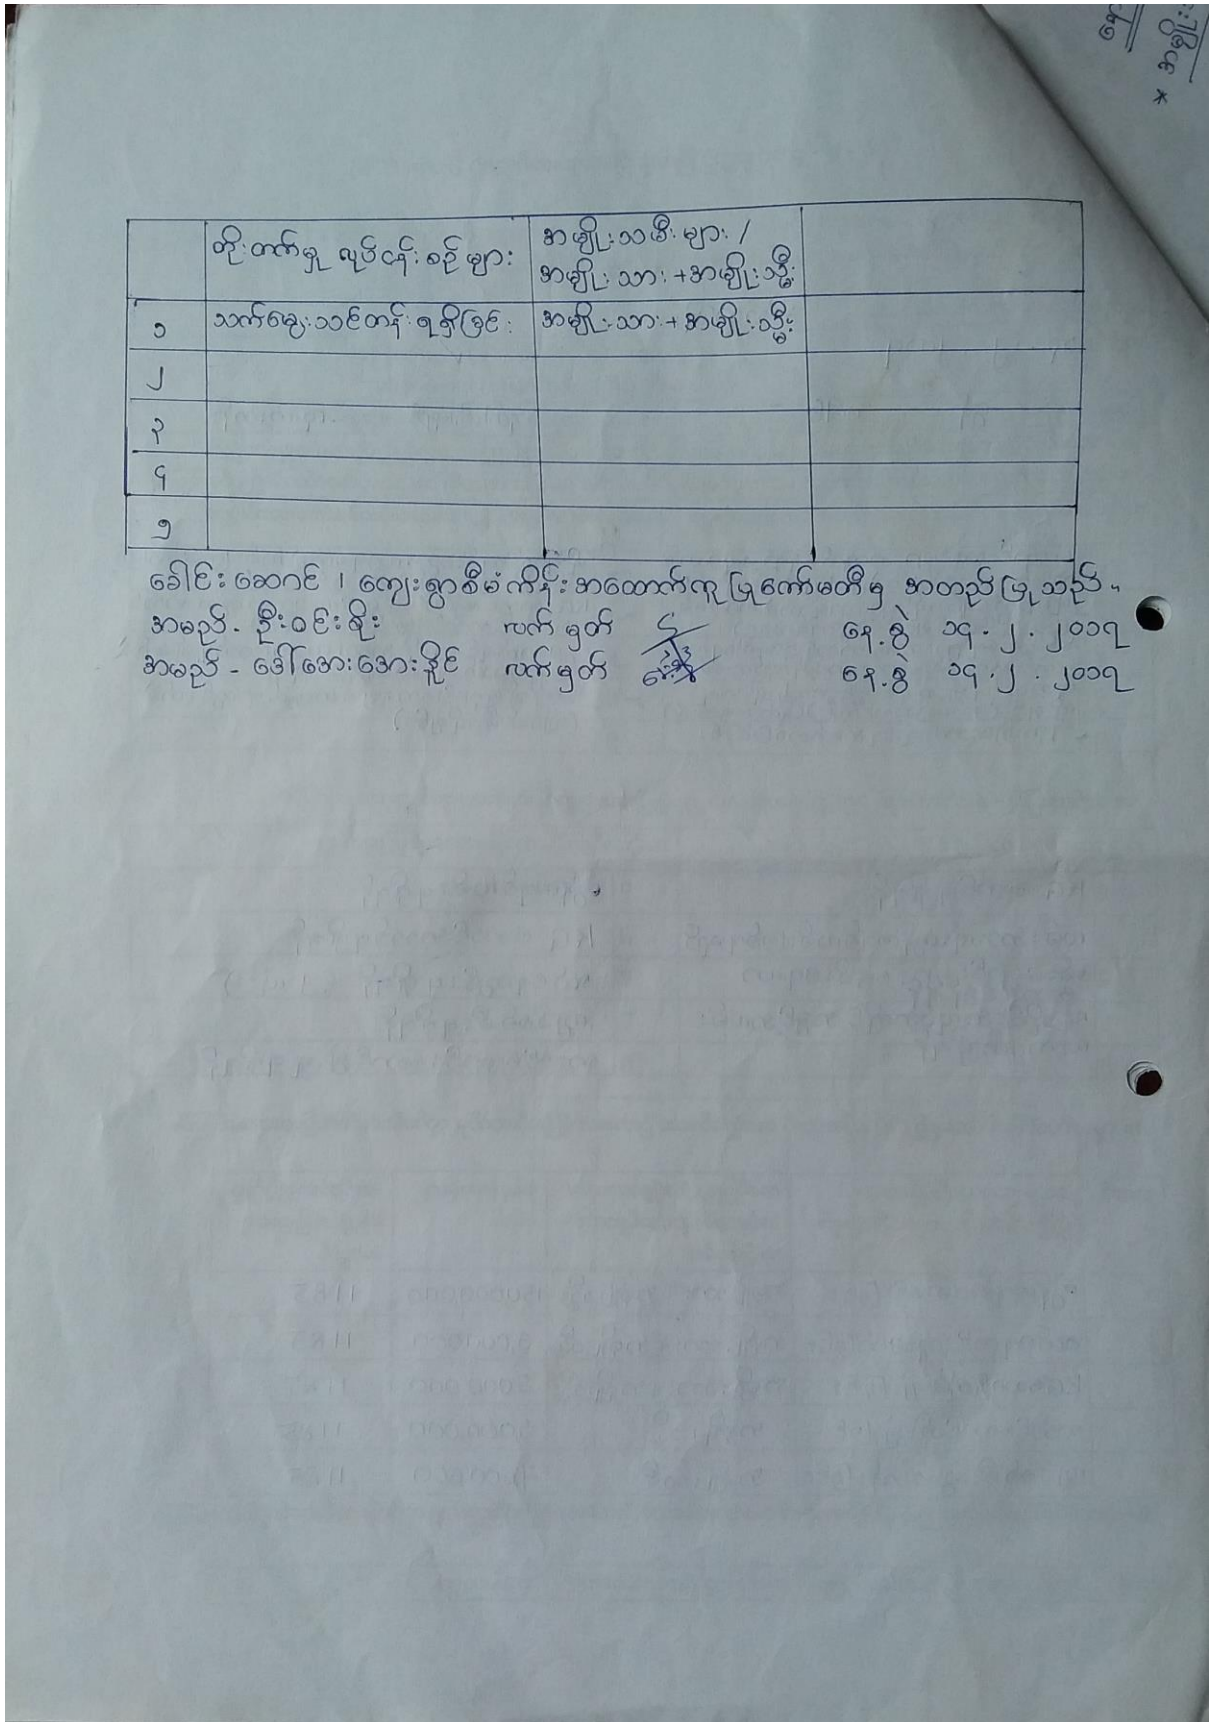 တိုးတက်မှု လုပ်ငန်းစဉ်များ
အမျိုးသမီးများ /
အမျိုးသား+အမျိုးသ္မီး
၁ သက်မွေးသင်တန်းရရှိခြင်း အမျိုးသား+အမျိုးသ္မီး
၂
၃
၄
၅
ခေါင်းဆောင် ၊ ကျေးရွာစီမံကိန်းအထောက်ကူပြုကော်မတီမှ အတည်ပြုသည်။
အမည်- ဦးဝင်းစိုး လက်မှတ် နေ့စွဲ ၁၄.၂.၂၀၁၇
အမည် - ဒေါ်အေးအေးခိုင် လက်မှတ် နေ့စွဲ ၁၄.၂.၂၀၁၇